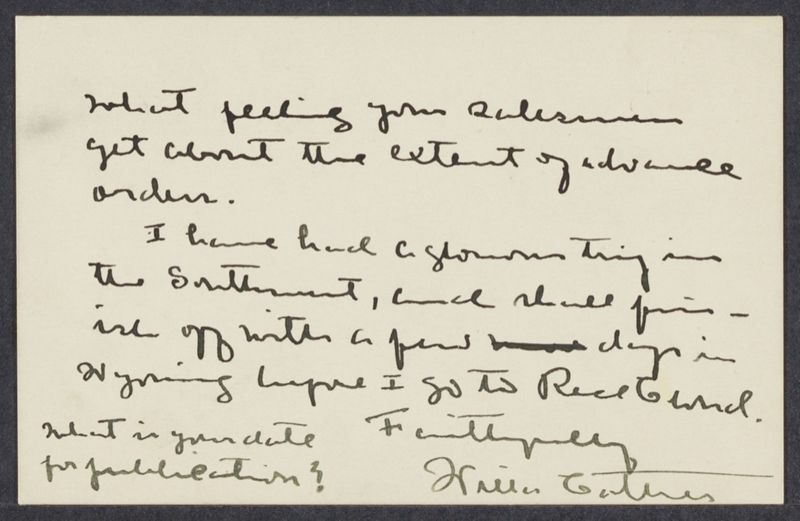 what feeling your salesmen
get about the extent of advance
orders.
I have had a glorious trip in
the Southwest, and shall fin-
ish off with a few days in
Wyoming before I go to Red Cloud.
Faithfully
Willa Cather
What is your date
for publication?